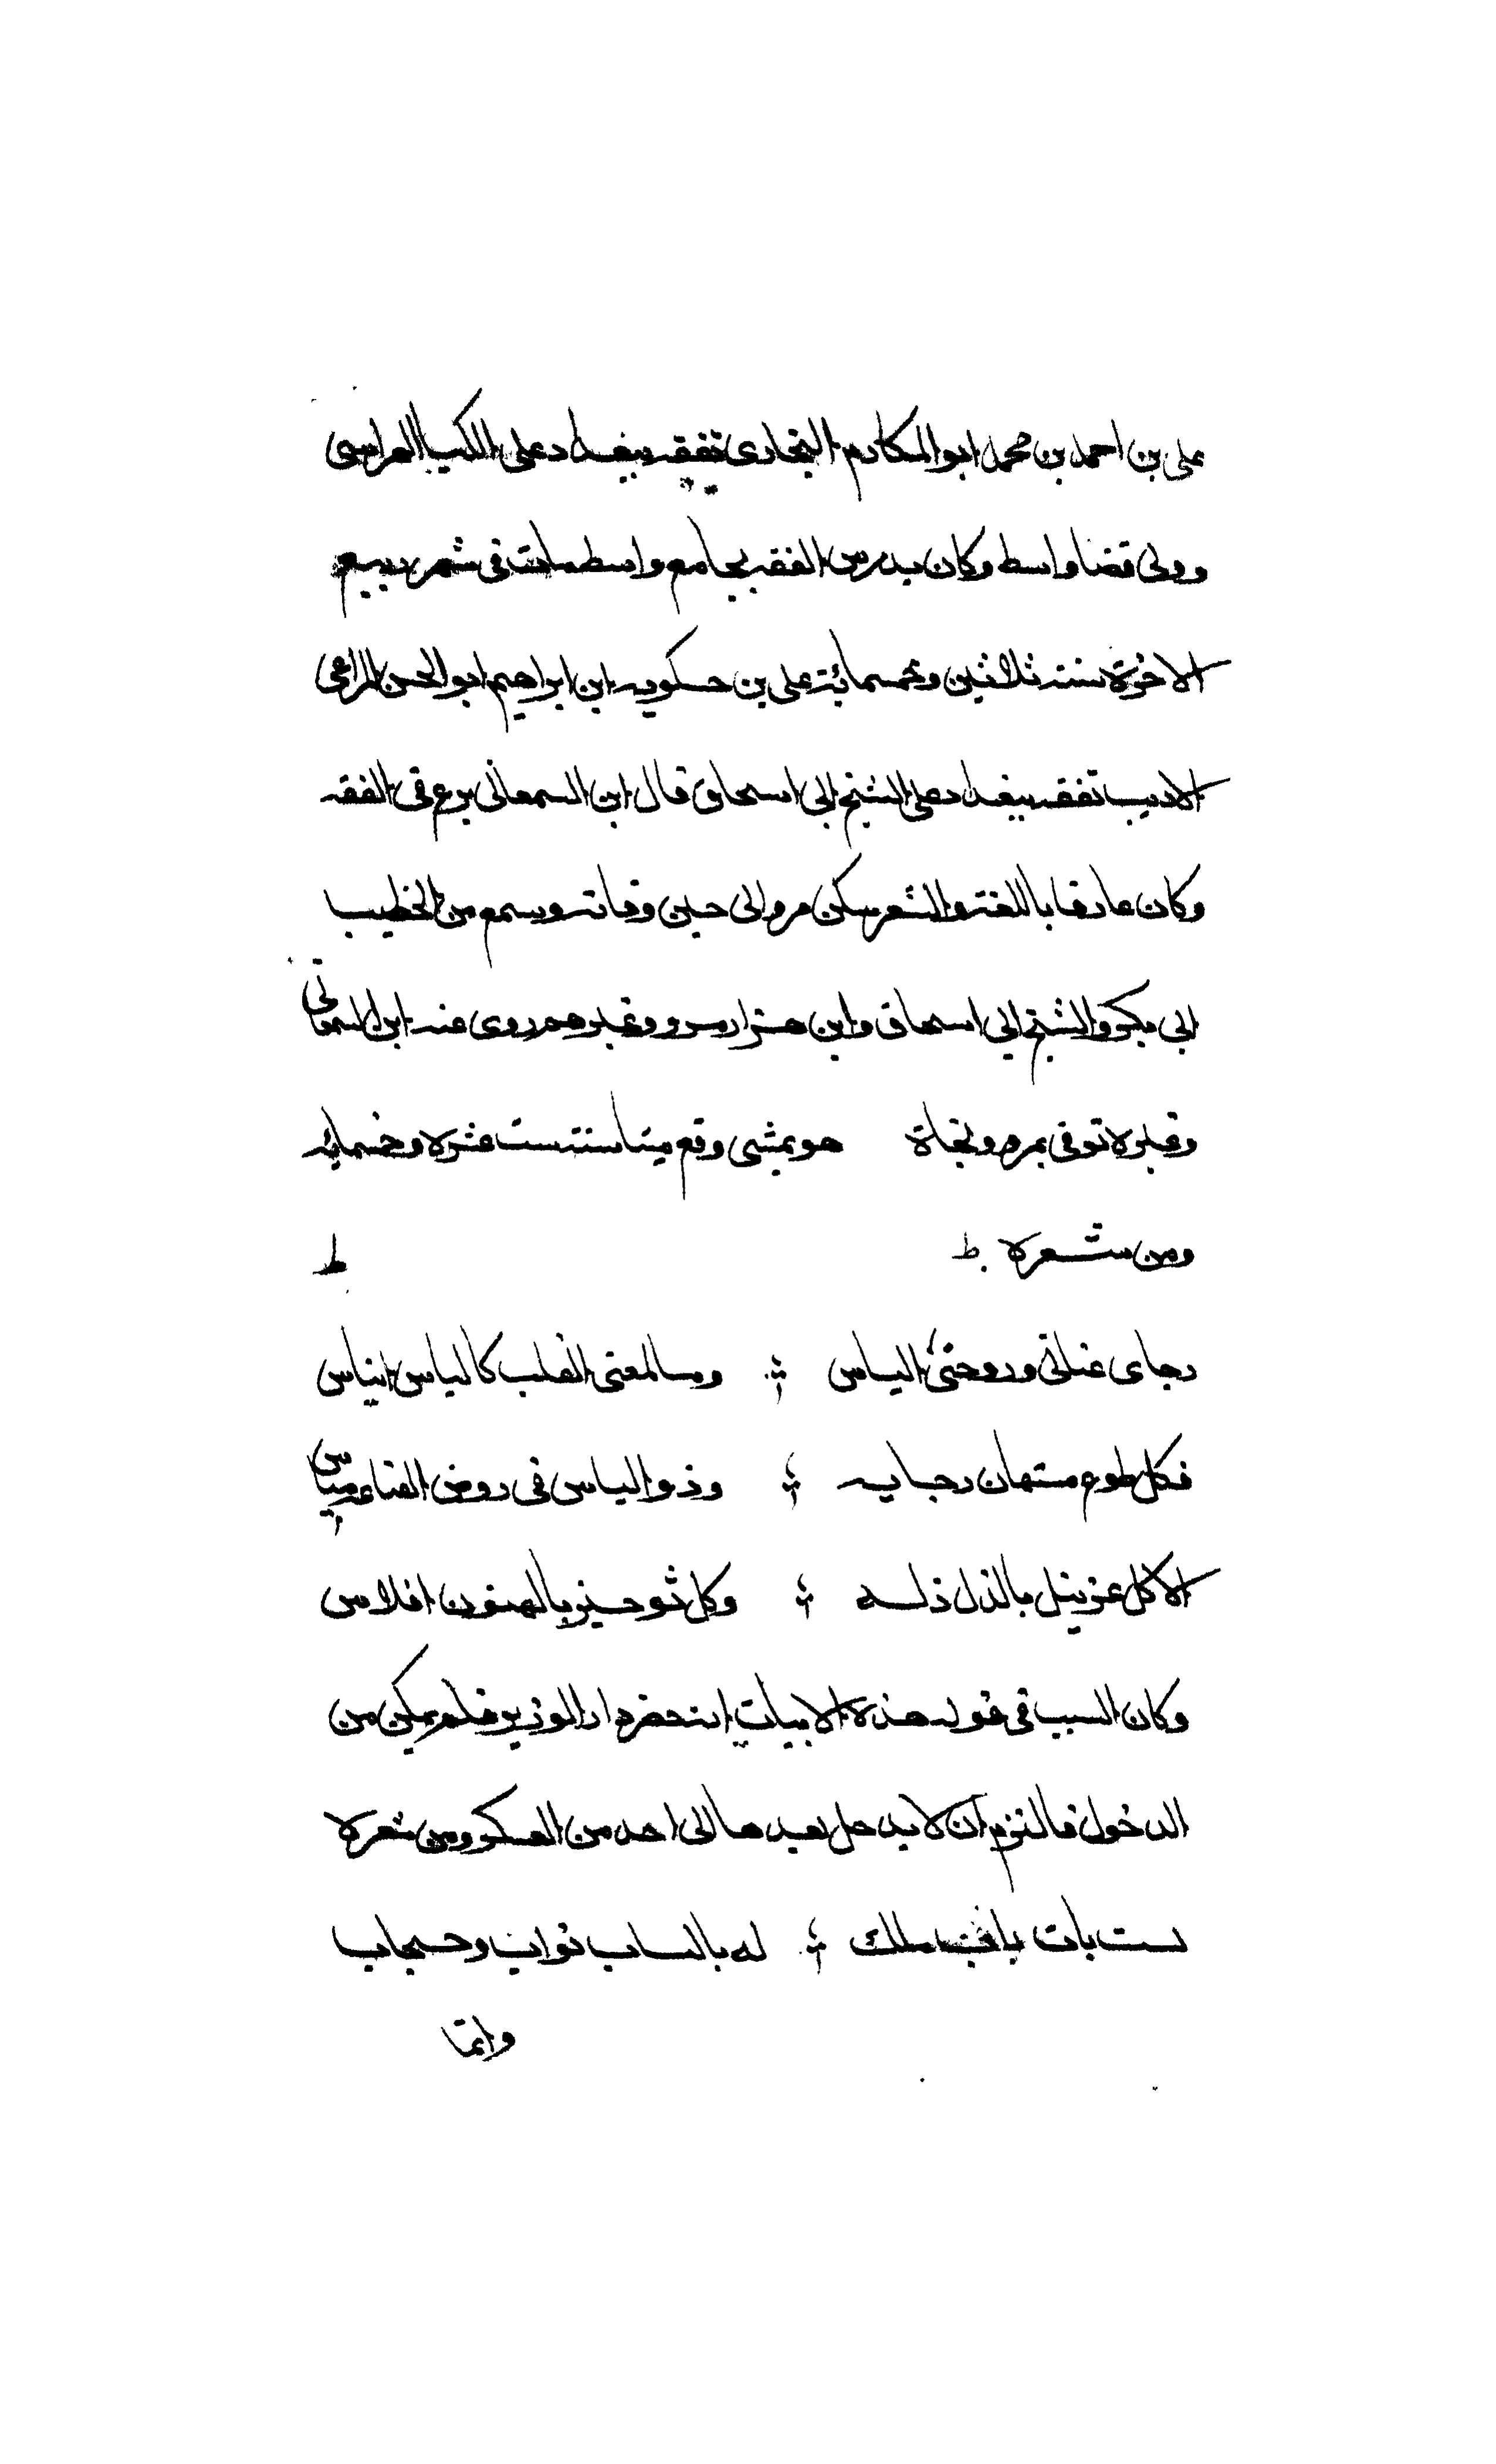 علي بن احمد بن محمد ابو المكارم البخارى تفقه ببغداد على الكيا الهراسى
وولى قضا واسط وكان يدرس الفقه بجامع واسط مات فى شهر ربيع
الاخرة سنة ثلاثين وخمسمائة على بن حسكويه ابن ابراهيم ابو الحسن المراغى
الاديب تفقه ببغداد على الشيخ ابى اسحاق قال ابن السمعانى برع فى الفقه
وكان عارفا باللغة والشعر سكن مرو الى حين وفاته وسمع من الخطيب
ابى بكر والشيخ ابى اسحاق وابن هزارمرد وغيرهم روى عنه ابن السمعانى
وغيره توفى بمرو فجاة هو يمشى وقع ميتا سنة ست عشرة وخمسمايه
ومن شعره ط ط
رجاى عنانى وروحنى الياس وما لمعنى القلب كالياس ايناس
فكل طوع مستهان رجايه وذو الياس فى روض القناعة مياس
الا كل عز ينل بالذل ذله وكل ثو حيز بالهون افلاس
وكان السبب فى قوله هذه الابيات انه حضر دار الوزير فلم يمكن من
الدخول فالتزم ان لا يدخل بعدها الى احد من العسكر ومن شعره
لست بات باب ملك له بالباب نواب وحجاب
وانما